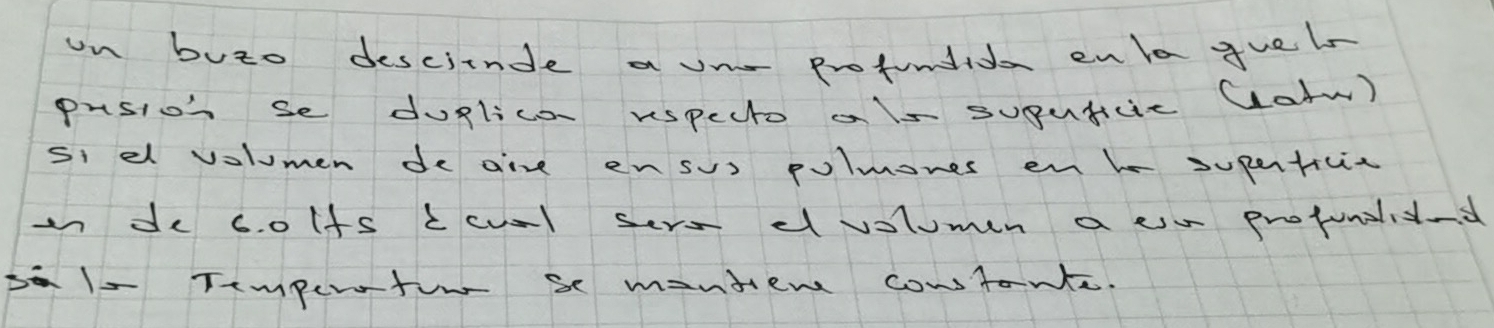 un buzo desciende a una profundida en la que la
presión se duplica respecto a la superficie (1atm)
si el volumen de aire en sus pulmones en la superficie
es de 6.0 lts ¿cual sera el volumen a esa profundidad
si la Temperatura se mantiene constante.